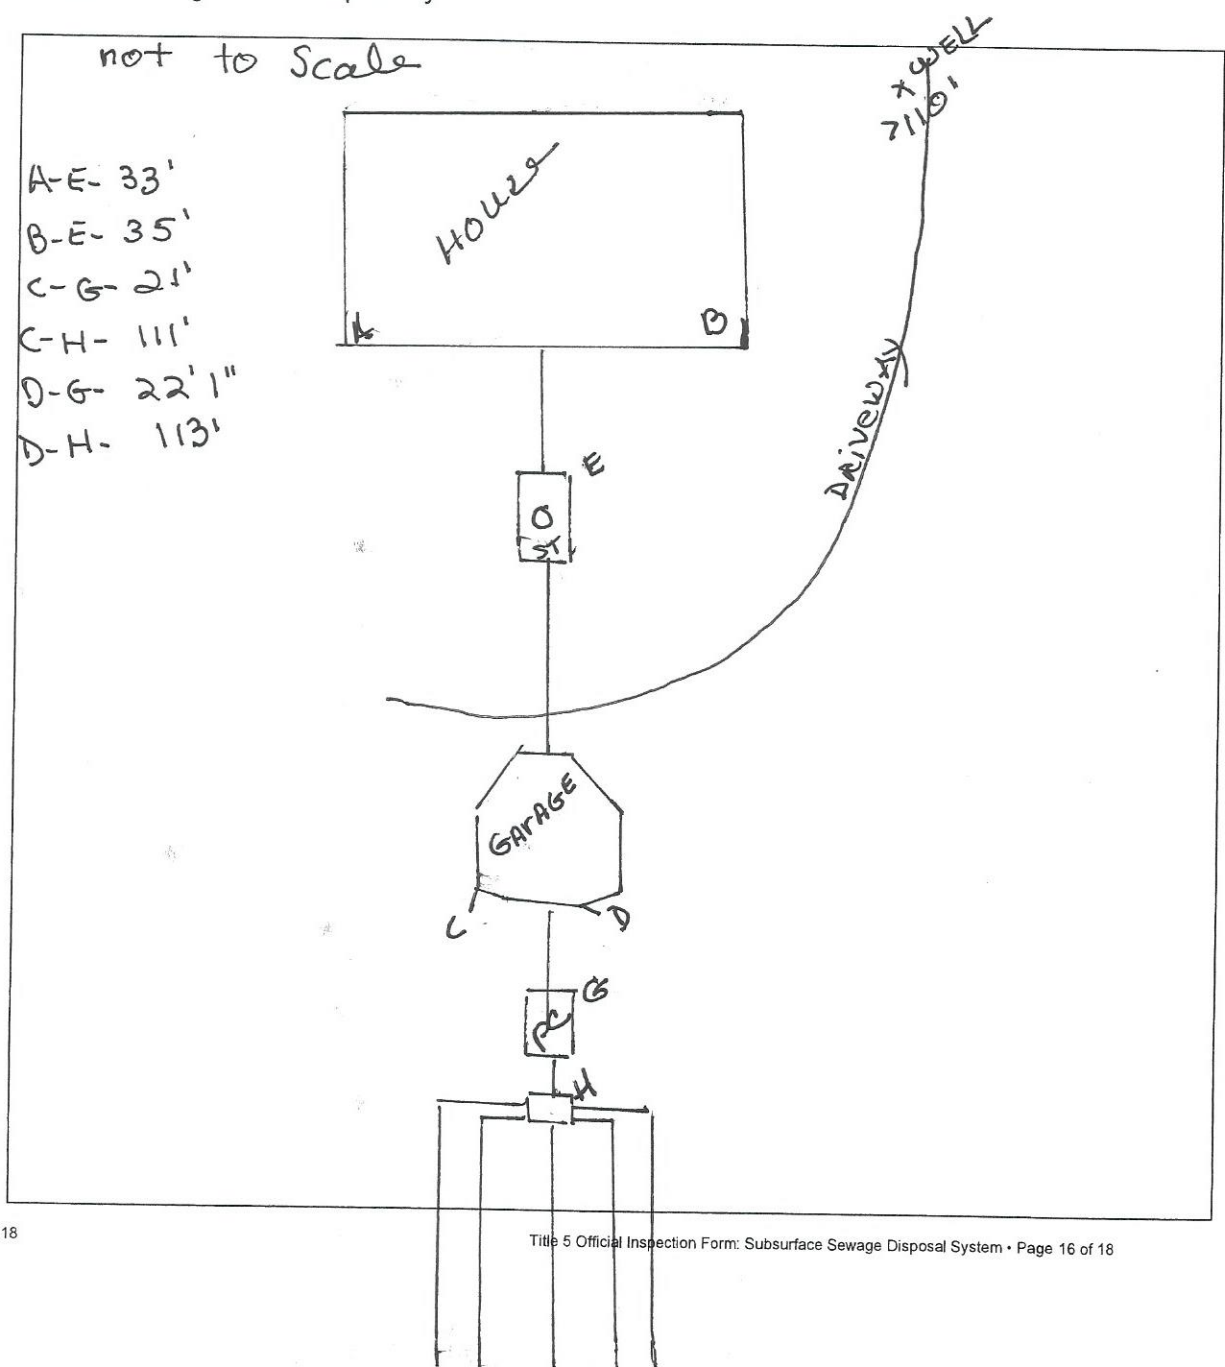 not to Scale
x WELL
>110'
A-E- 33'
B-E- 35'
C-G- 21'
C-H- 111'
D-G- 22'1"
D-H- 113'
HOUSE
A
B
DRIVEWAY
E
O
ST
GArAGE
C
D
G
PC
H
18
Title 5 Official Inspection Form: Subsurface Sewage Disposal System • Page 16 of 18